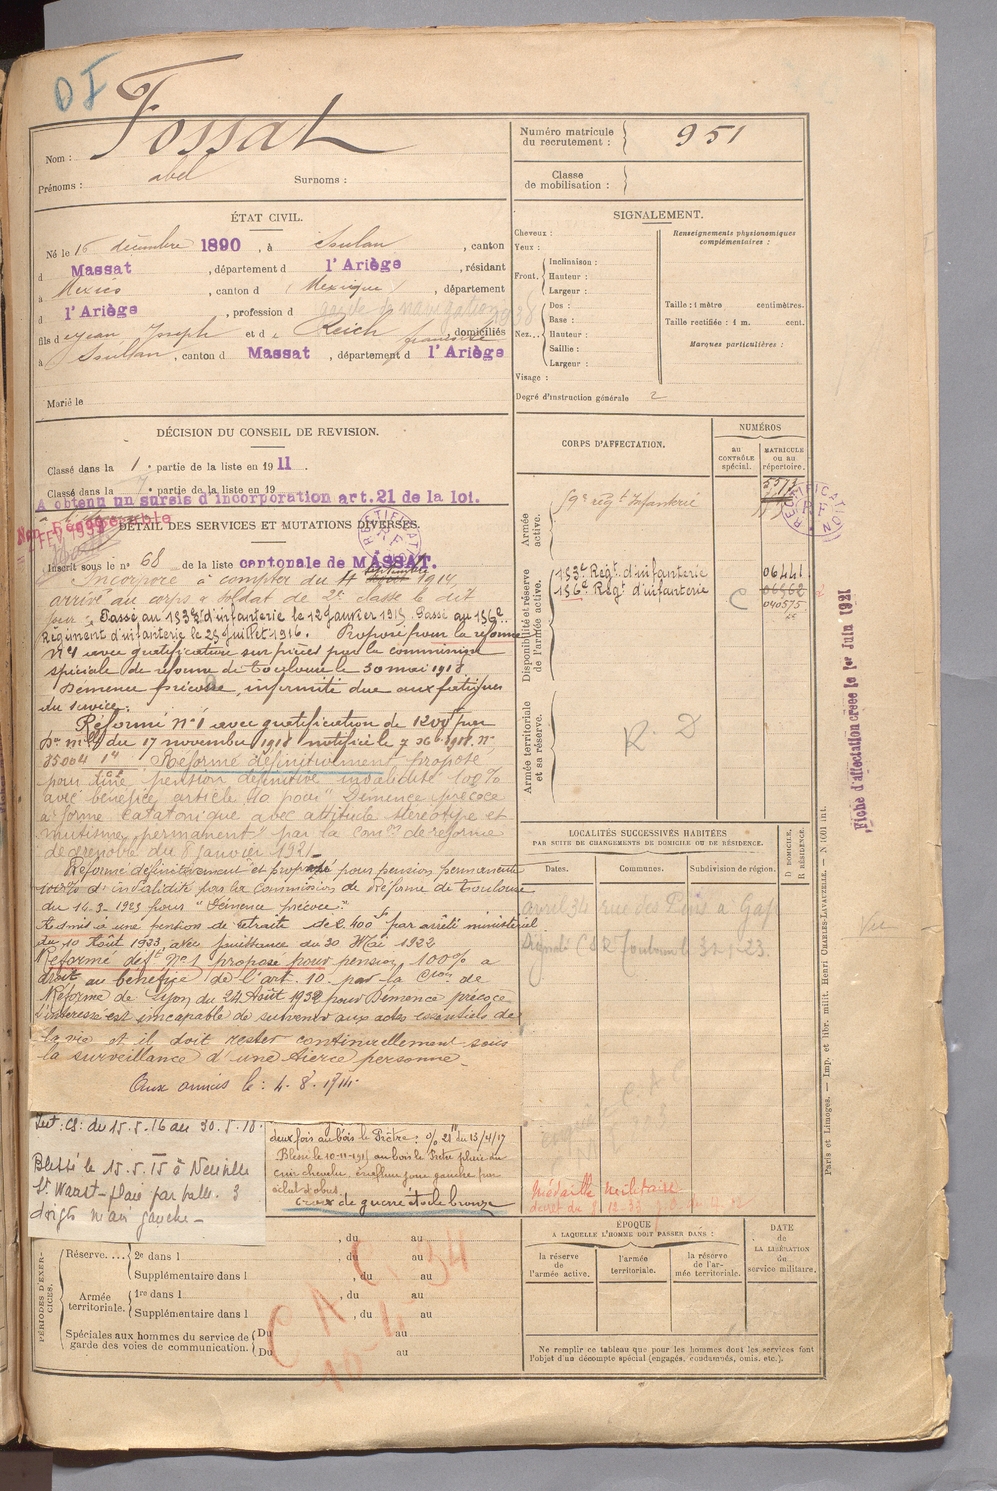 DF
Fossat
Nom :
Prénoms : abel Surnoms :
Numéro matricule du recrutement : 951
Classe de mobilisation :
ÉTAT CIVIL.
Né le 16 décembre 1890, à Soulan, canton
d Massat, département d l'Ariège, résidant
à Mexico, canton d (Mexique), département
d l'Ariège, profession d
fils d Jean Joseph et d Keich françoise, domiciliés
à Soulan, canton d Massat, département d l'Ariège
Marié le
SIGNALEMENT.
Cheveux :
Yeux :
Front. Inclinaison :
Hauteur :
Largeur :
Nez... Dos :
Base :
Hauteur :
Saillie :
Largeur :
Visage :
Renseignements physionomiques complémentaires :
Taille : 1 mètre centimètres.
Taille rectifiée : 1 m. cent.
Marques particulières :
Degré d'instruction générale 2
DÉCISION DU CONSEIL DE REVISION.
Classé dans la 1e partie de la liste en 1911.
Classé dans la e partie de la liste en 19
A obtenu un sursis d'incorporation art. 21 de la loi.
DÉTAIL DES SERVICES ET MUTATIONS DIVERSES.
RECTIFICATION
RF
Inscrit sous le n° 68 de la liste cantonale de MASSAT.
Incorporé à compter du 4 septembre 1914
arrivé au corps & soldat de 2e classe le dit
jour. Passé au 153e d'infanterie le 12 janvier 1915. Passé au 156e
Régiment d'infanterie le 25 juillet 1916. Proposé pour la réforme
N°1 avec gratification sur pièces par la commission
spéciale de réforme de Toulouse le 30 mai 1918.
Démence précoce, infirmité due aux fatigues
du service.
Réformé n°1 avec gratification de 1200f par
Don mlle du 17 novembre 1918 notifié le 7 Xbre 1918. N°
35004 Réformé définitivement, proposé
pour une pension définitive invalidité 100%
avec bénéfice article 10 pour "Démence précoce
à forme catatonique avec attitude stéréotype et
mutisme permanent" par la comon de réforme
de Grenoble du 8 janvier 1921
Réformé définitivement et proposé pour pension permanente
100% d'invalidité par la Commission de Réforme de Toulouse
du 16-3-1923 pour "Démence précoce"
Admis à une pension de retraite de 2.400f par arrêté ministériel
du 10 Août 1923, avec jouissance du 30 Mai 1922
Réformé déft n°1 proposé pour pension 100% a
droit au bénéfice de l'art. 10 par la Cion de
Réforme de Lyon du 24 Août 1932 pour Démence précoce
L'intéressé est incapable de subvenir aux actes essentiels de
la vie et il doit rester continuellement sous
la surveillance d'une tierce personne
Aux armées le : 4. 8. 1914.
Int : CS : du 15.5.16 au 30.5.18.
Blessé le 15.5.15 à Neuville
St Waast - plaie par balle 3
doigts main gauche -
deux fois au bois le Prêtre : o/ 21 du 13/4/17
Blessé le 10-11-1915 au bois le Prêtre plaie du
cuir chevelu, éraflure joue gauche par
éclat d'obus
Croix de guerre étoile bronze
CORPS D'AFFECTATION.
NUMÉROS
au contrôle spécial.
MATRICULE ou au répertoire.
Armée active.
59e régt Infanterie
RECTIFICATION
RF
Disponibilité et réserve de l'armée active.
153e Régt d'infanterie 06441
156e Régt d'infanterie 06562
C
040575
Armée territoriale et sa réserve.
R. D
LOCALITÉS SUCCESSIVES HABITÉES
PAR SUITE DE CHANGEMENTS DE DOMICILE OU DE RÉSIDENCE.
D DOMICILE, R RÉSIDENCE.
Dates. Communes. Subdivision de région.
avril 34 rue des Pins à Gap
Médaille militaire
ÉPOQUE
A LAQUELLE L'HOMME DOIT PASSER DANS :
la réserve de l'armée active.
l'armée territoriale.
la réserve de l'armée territoriale.
DATE DE LA LIBÉRATION du service militaire.
Ne remplir ce tableau que pour les hommes dont les services font l'objet d'un décompte spécial (engagés, condamnés, omis, etc.).
PÉRIODES D'EXERCICES.
Réserve.... 2e dans l , du au
Supplémentaire dans l , du au
Armée territoriale. 1re dans l , du au
Supplémentaire dans l , du au
Spéciales aux hommes du service de garde des voies de communication. Du au
Du au
C A
Fiche d'affectation créée le 1er Juin 1921
Paris et Limoges. — Imp. et libr. milit. Henri CHARLES-LAVAUZELLE.
Vu